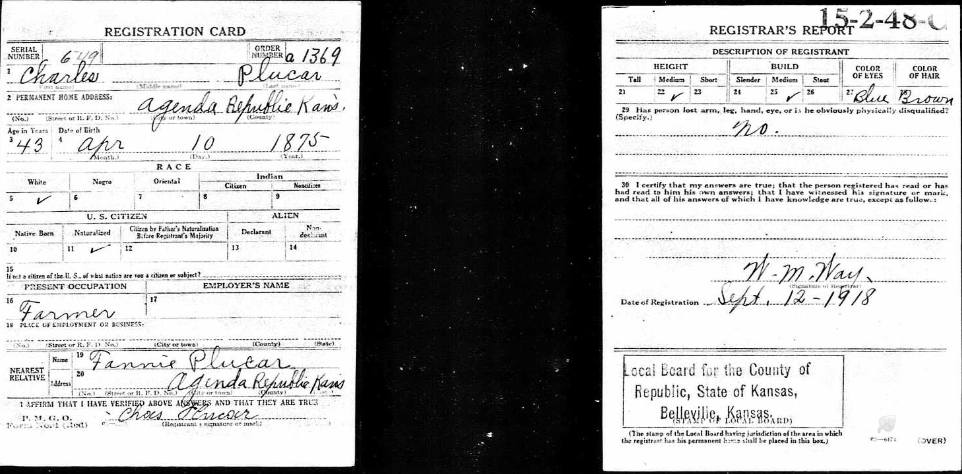 REGISTRATION CARD
SERIAL NUMBER 649 ORDER NUMBER a 1369
1 Charles Plucar
(First name) (Middle name) (Last name)
2 PERMANENT HOME ADDRESS:
Agenda Republic Kans.
(No.) (Street or R. F. D. No.) (City or town) (County)
Age in Years Date of Birth
3 43 4 Apr 10 1875
(Month.) (Day.) (Year.)
RACE
White Negro Oriental Indian
Citizen Noncitizen
5 ✓ 6 7 8 9
U. S. CITIZEN ALIEN
Native Born Naturalized Citizen by Father's Naturalization Before Registrant's Majority Declarant Non-declarant
10 11 ✓ 12 13 14
15
If not a citizen of the U. S., of what nation are you a citizen or subject?
PRESENT OCCUPATION EMPLOYER'S NAME
16 Farmer 17
18 PLACE OF EMPLOYMENT OR BUSINESS:
(No.) (Street or R. F. D. No.) (City or town) (County) (State)
NEAREST RELATIVE Name 19 Fannie Plucar
Address 20 Agenda Republic Kans
(No.) (Street or R. F. D. No.) (City or town) (County)
I AFFIRM THAT I HAVE VERIFIED ABOVE ANSWERS AND THAT THEY ARE TRUE
P. M. G. O.
Form No. 1 (Red) Chas Plucar
(Registrant's signature or mark)
15-2-48-C
REGISTRAR'S REPORT
DESCRIPTION OF REGISTRANT
HEIGHT BUILD COLOR OF EYES COLOR OF HAIR
Tall Medium Short Slender Medium Stout
21 22 ✓ 23 24 25 ✓ 26 27 Blue Brown
29 Has person lost arm, leg, hand, eye, or is he obviously physically disqualified?
(Specify.)
No.
30 I certify that my answers are true; that the person registered has read or has
had read to him his own answers; that I have witnessed his signature or mark,
and that all of his answers of which I have knowledge are true, except as follows:
W. M. Way.
(Signature of Registrar)
Date of Registration Sept. 12-1918
Local Board for the County of
Republic, State of Kansas,
Belleville, Kansas.
(STAMP OF LOCAL BOARD)
(The stamp of the Local Board having jurisdiction of the area in which
the registrant has his permanent home shall be placed in this box.)
(OVER)